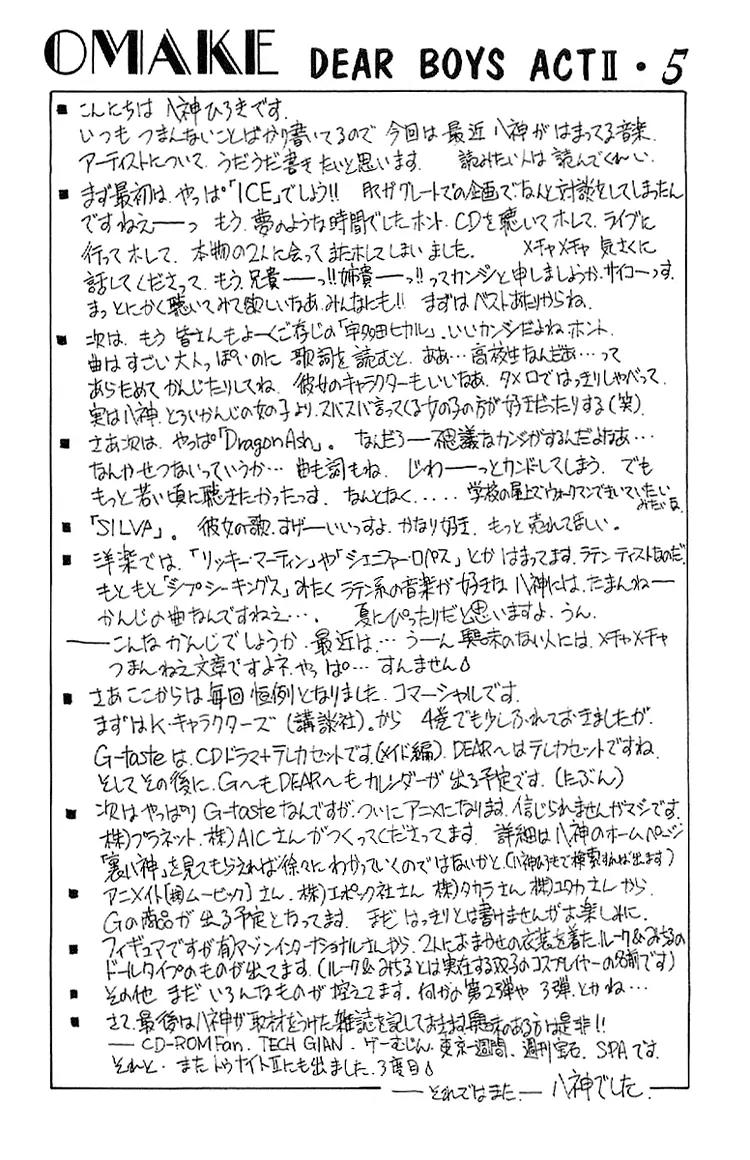 OMAKE DEAR BOYS ACTⅡ・5
■ こんにちは 八神ひろきです.
いつも つまんないことばかり書いてるので 今回は 最近 八神がはまってる音楽.
アーティストについて、うだうだ書きたいと思います. 読みたい人は 読んでくれい.
■ まず最初は、やっぱ「ICE」でしょう!! ガグレートでの企画で、なんと対談をしてしまったん
ですねえ——っ もう、夢のような時間でしたホント. CDを聴いてホレて、ライブに
行ってホレて、本物の2人に会って またホレてしまいました. メチャメチャ 気さくに
話してくださって、もう、兄貴——っ!!姉貴——っ!!ってカンジと申しましょうか、サイコーっす.
まっ とにかく聴いてみて欲しいなあ、みんなにも!! まずは ベストあたりからね.
■ 次は、もう 皆さんもよーくご存じの「宇多田ヒカル」.いいカンジだよね ホント.
曲はすごい大人っぽいのに 歌詞を読むと、ああ…高校生なんだあ…って
あらためて かんじたりしてね、彼女のキャラクターもいいなあ、タメ口ではっきりしゃべって、
実は八神、そういうかんじの女の子より、スパスパ言ってくる女の子の方が好きだったりする(笑)
■ さあ次は、やっぱ「Dragon Ash」。 なんだろー 不思議なカンジがするんだよなあ…
なんかせつないっていうか… 曲も詞もね、じわ——っとカンドーしてしまう. でも
もっと若い頃に聴きたかったっす. なんとなく…… 学校の屋上でウォークマンできいていたい
みたいな.
■ 「SILVA」。 彼女の歌、すげーいいっすよ、かなり好き、もっと売れてほしい.
■ 洋楽では、「リッキー・マーティン」や「ジェニファー・ロペス」とか はまってます.ラテンティストなのだ.
もともと「ジプシーキングス」みたく ラテン系の音楽が好きな 八神には、たまんねー
かんじの曲なんですねえ…. 夏にぴったりだと思いますよ、うん.
——こんな かんじでしょうか、最近は… うーん 興味のない人には、メチャメチャ
つまんねえ文章ですよネ.やっぱ… すんません
■ さあ ここからは毎回 恒例となりました、コマーシャルです.
まずはK・キャラクターズ (講談社)。から 4巻でも少しふれておきましたが、
G-tasteは、CDドラマ+テレカセットです.(メイド編). DEAR〜はテレカセットですね.
そして その後に、G〜もDEAR〜も カレンダーが 出る予定です. (たぶん)
■ 次はやっぱり G-tasteなんですが、ついにアニメになります.信じられませんがマジです.
株)プラネット、株)AICさんがつくってくださってます. 詳細は八神のホームページ
「裏八神」を見てもらえれば徐々に わかっていくのではないかと.(八神ひろきで検索すれば出ます)
■ アニメイト[(株)ムービック]さん、株)エポック社さん 株)タカラさん 株)ユタカさん から
Gの商品が 出る予定となってます. まだ はっきりとは書けませんがお楽しみに.
■ フィギュアですが有)マゾンインターナショナルさんから、2人におまかせの衣装を着た.ルーク&みちるの
ドールタイプのものが出てます.(ルーク&みちるとは実在する双子のコスプレイヤーの名前です)
■ その他 まだ いろんなものが 控えてます.何かの第2弾や 3弾、とかね…
■ さて、最後は八神が取材をうけた雑誌を記しておきます.興味のある方は是非!!
— CD-ROM Fan、TECH GIAN、ゲーむじん、東京一週間、週刊宝石、SPAです.
それと、また トゥナイトⅡにも出ました、3度目
——それではまた.— 八神でした.